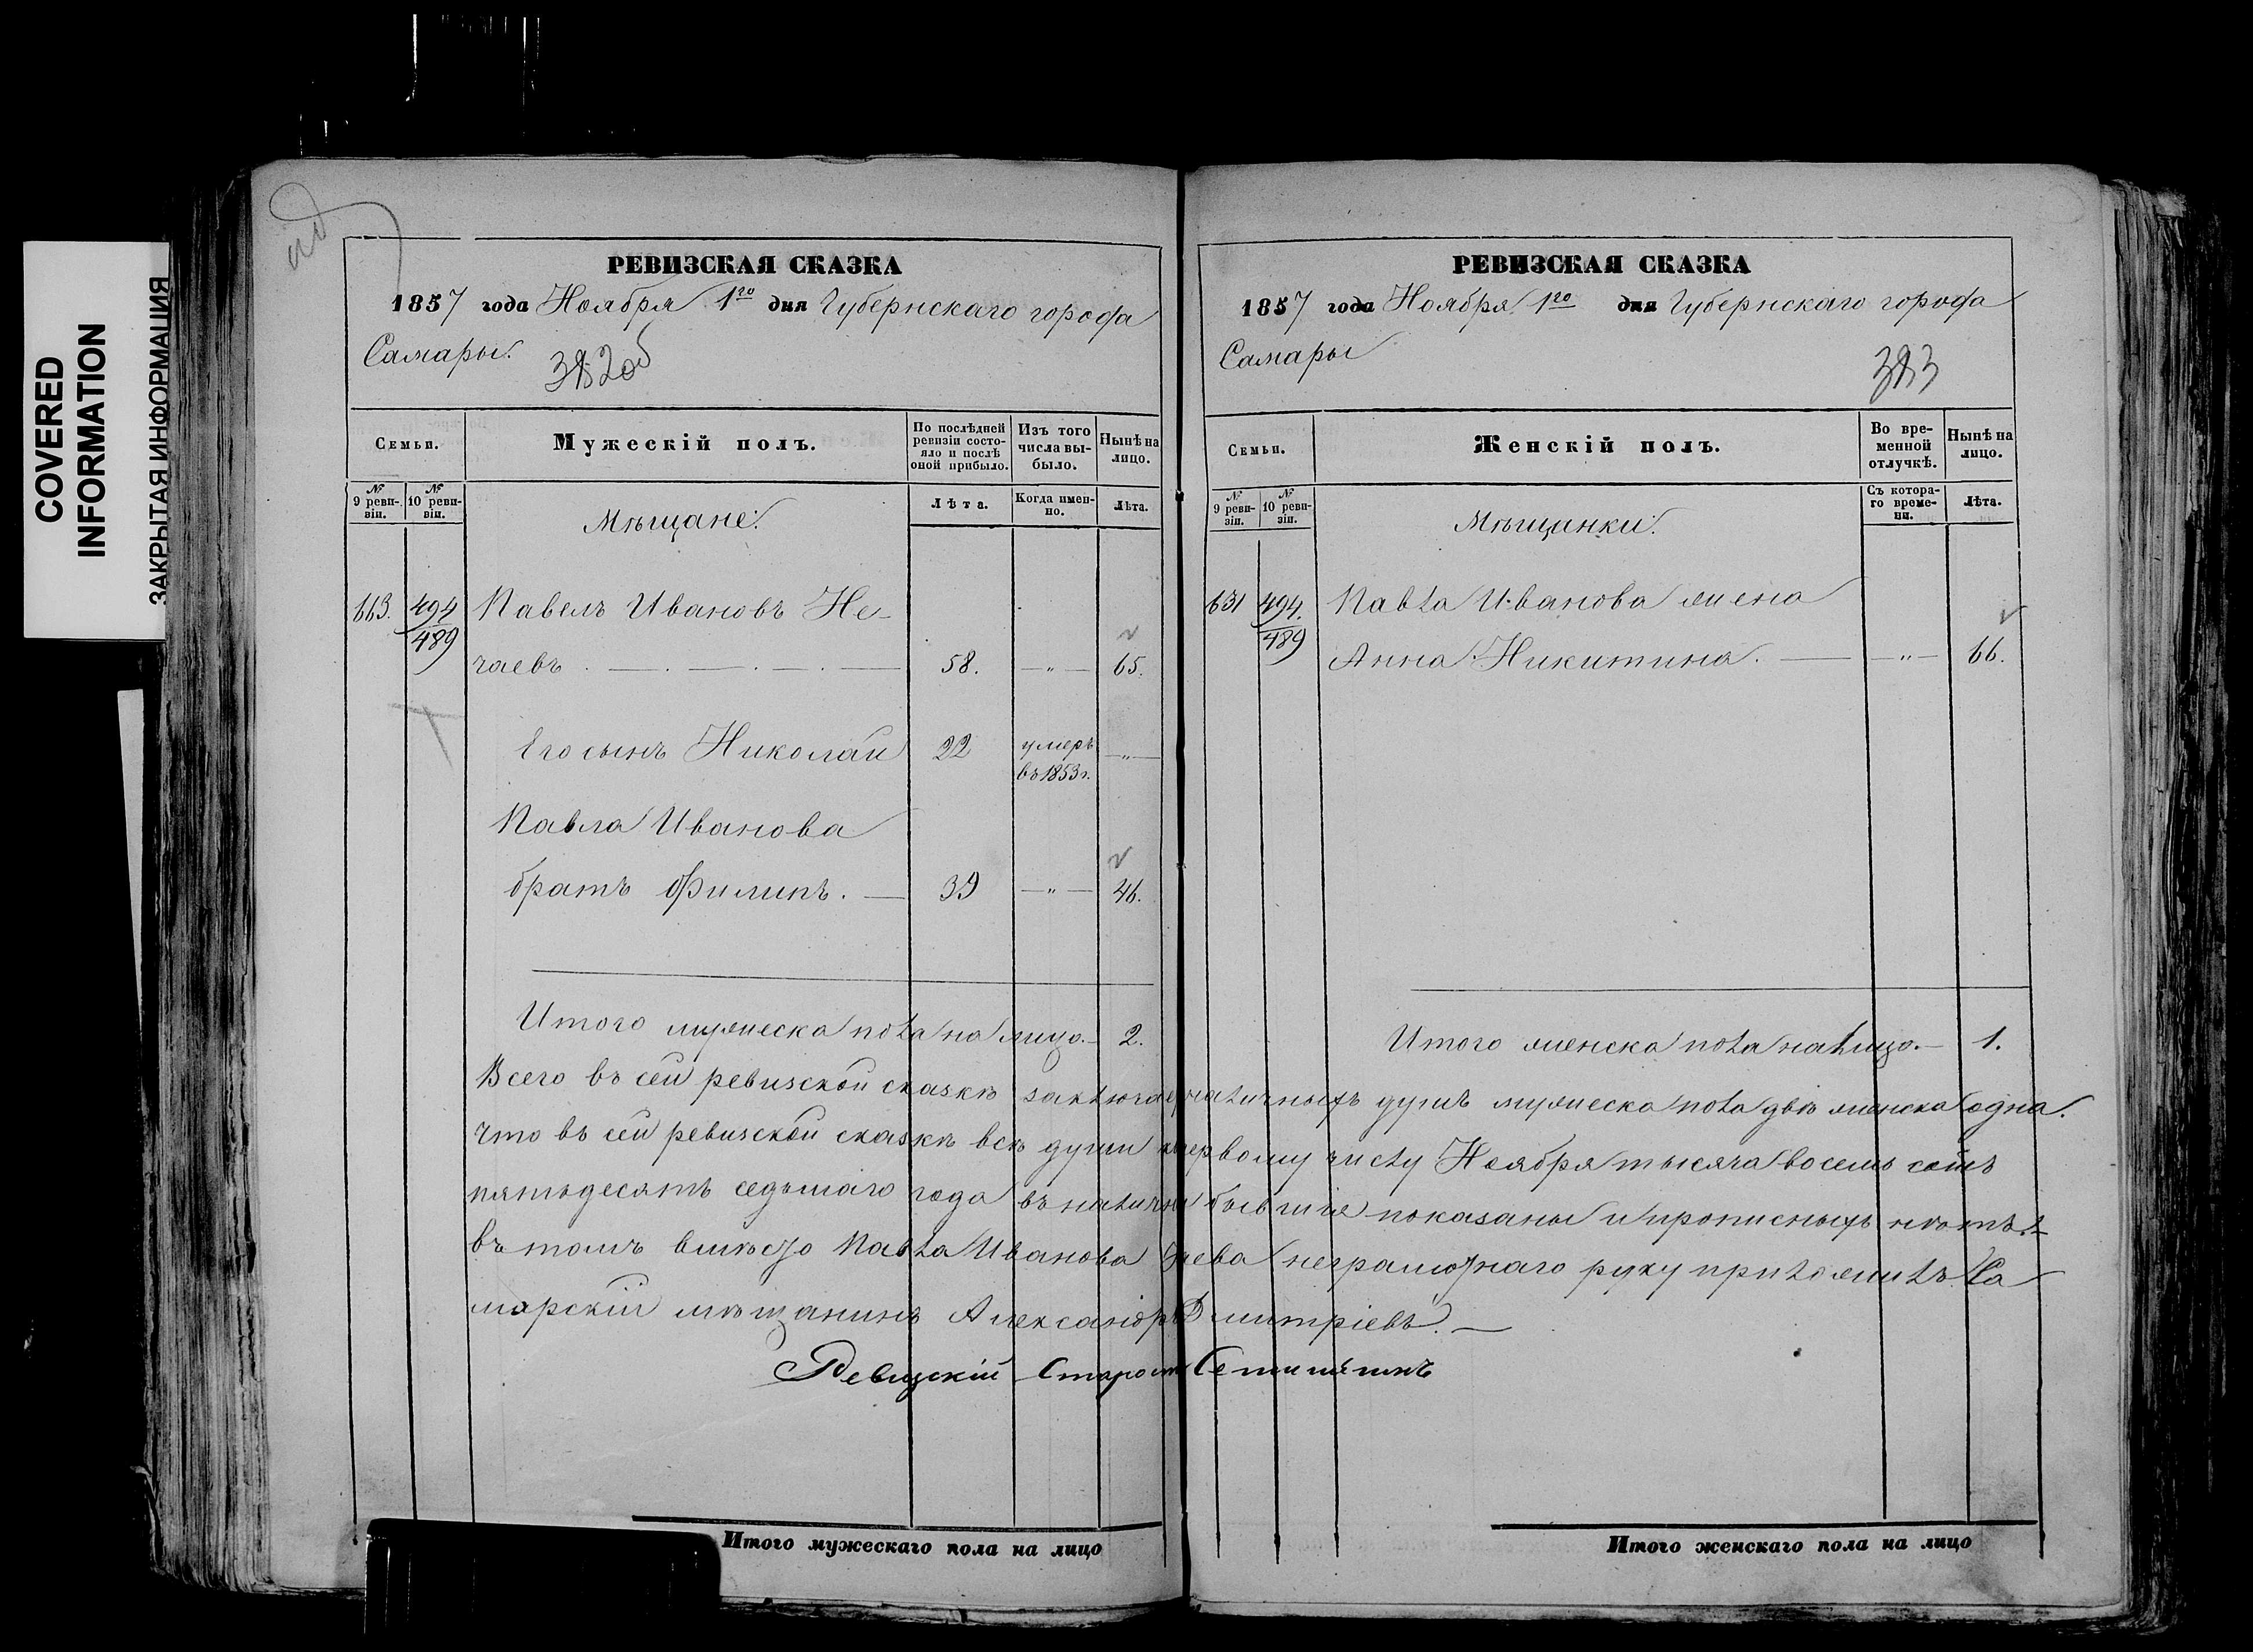 COVERED
INFORMATION
ЗАКРЫТАЯ ИНФОРМАЦИЯ
РЕВИЗСКАЯ СКАЗКА
1857 года Ноября 1го дня Губернскаго города
Самары.
Семьи.
Мужескій полъ.
По послѣдней ревизіи состояло и послѣ оной прибыло.
Изъ того числа выбыло.
Нынѣ на лицо.
№ 9 ревизіи.
№ 10 ревизіи.
Мѣщане.
Лѣта.
Когда именно.
Лѣта.
663. 494 Павелъ Ивановъ Не-
489
чаевъ 58. —"— 65.
Его сынъ Николай 22 умеръ въ 1853 г. —"—
Павла Иванова
братъ Филипъ. — 39 —"— 46.
Итого мужеска пола на лицо. — 2.
РЕВИЗСКАЯ СКАЗКА
1857 года Ноября 1го дня Губернскаго города
Самары
Семьи.
Женскій полъ.
Во временной отлучкѣ.
Нынѣ на лицо.
№ 9 ревизіи.
№ 10 ревизіи.
Мѣщинки.
Съ котораго времени.
Лѣта.
631 494. Павла Иванова жена
489
Анна Никитина. — —"— 66.
Итого женска пола на лицо. — 1.
Всего въ сей ревизской сказкѣ наличныхъ душъ мужеска пола двѣ женска одна.
что въ сей ревизской сказкѣ всѣ души первому числу Ноября тысяча восемь сотъ
пятьдесятъ седьмаго года въ бывшіе показаны и прописныхъ нѣтъ.
въ томъ вмѣсто Павла Иванова неграмотнаго руку приложилъ Са
марскій мѣщанинъ Александръ Дмитріевъ. —
Ревизскій
Итого мужескаго пола на лицо
Итого женскаго пола на лицо